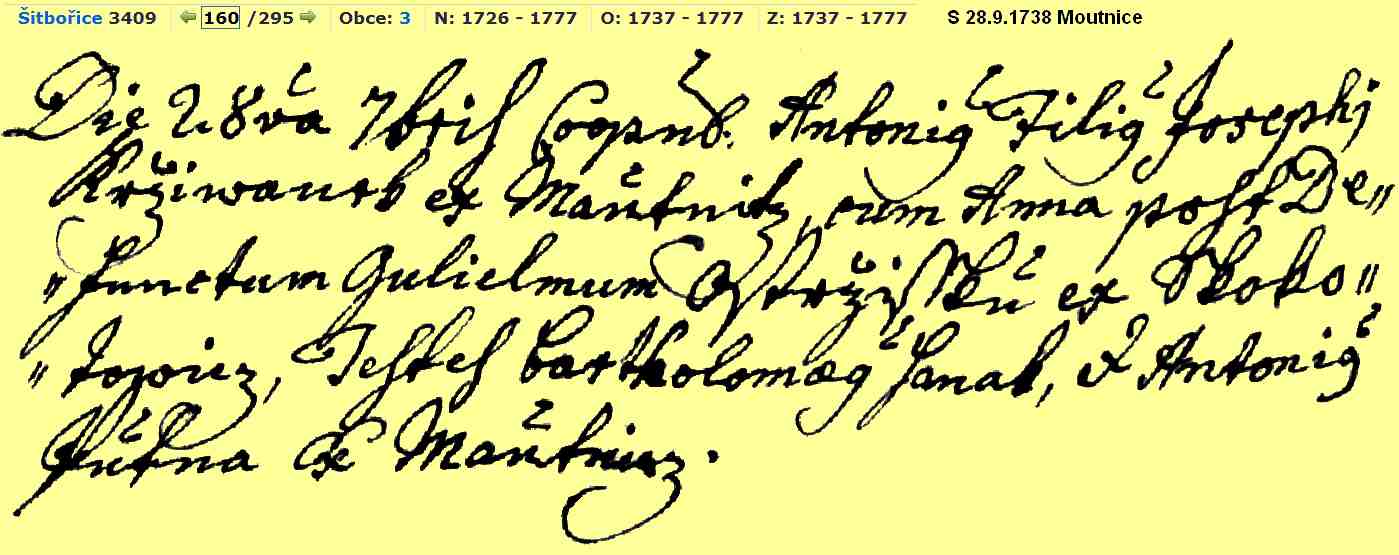 Šitbořice 3409 160 /295 Obce: 3 N: 1726 - 1777 O: 1737 - 1777 Z: 1737 - 1777 S 28.9.1738 Moutnice
Die 28va 7bris Antonig Filig Josephi
Krživaneck ex Mautnitz, cum Anna post De„
„functum Gulielmum Ostržisku ex Skoko„
Testes Bartholomæg Hanak, & Antonig
ex Mautnicz.